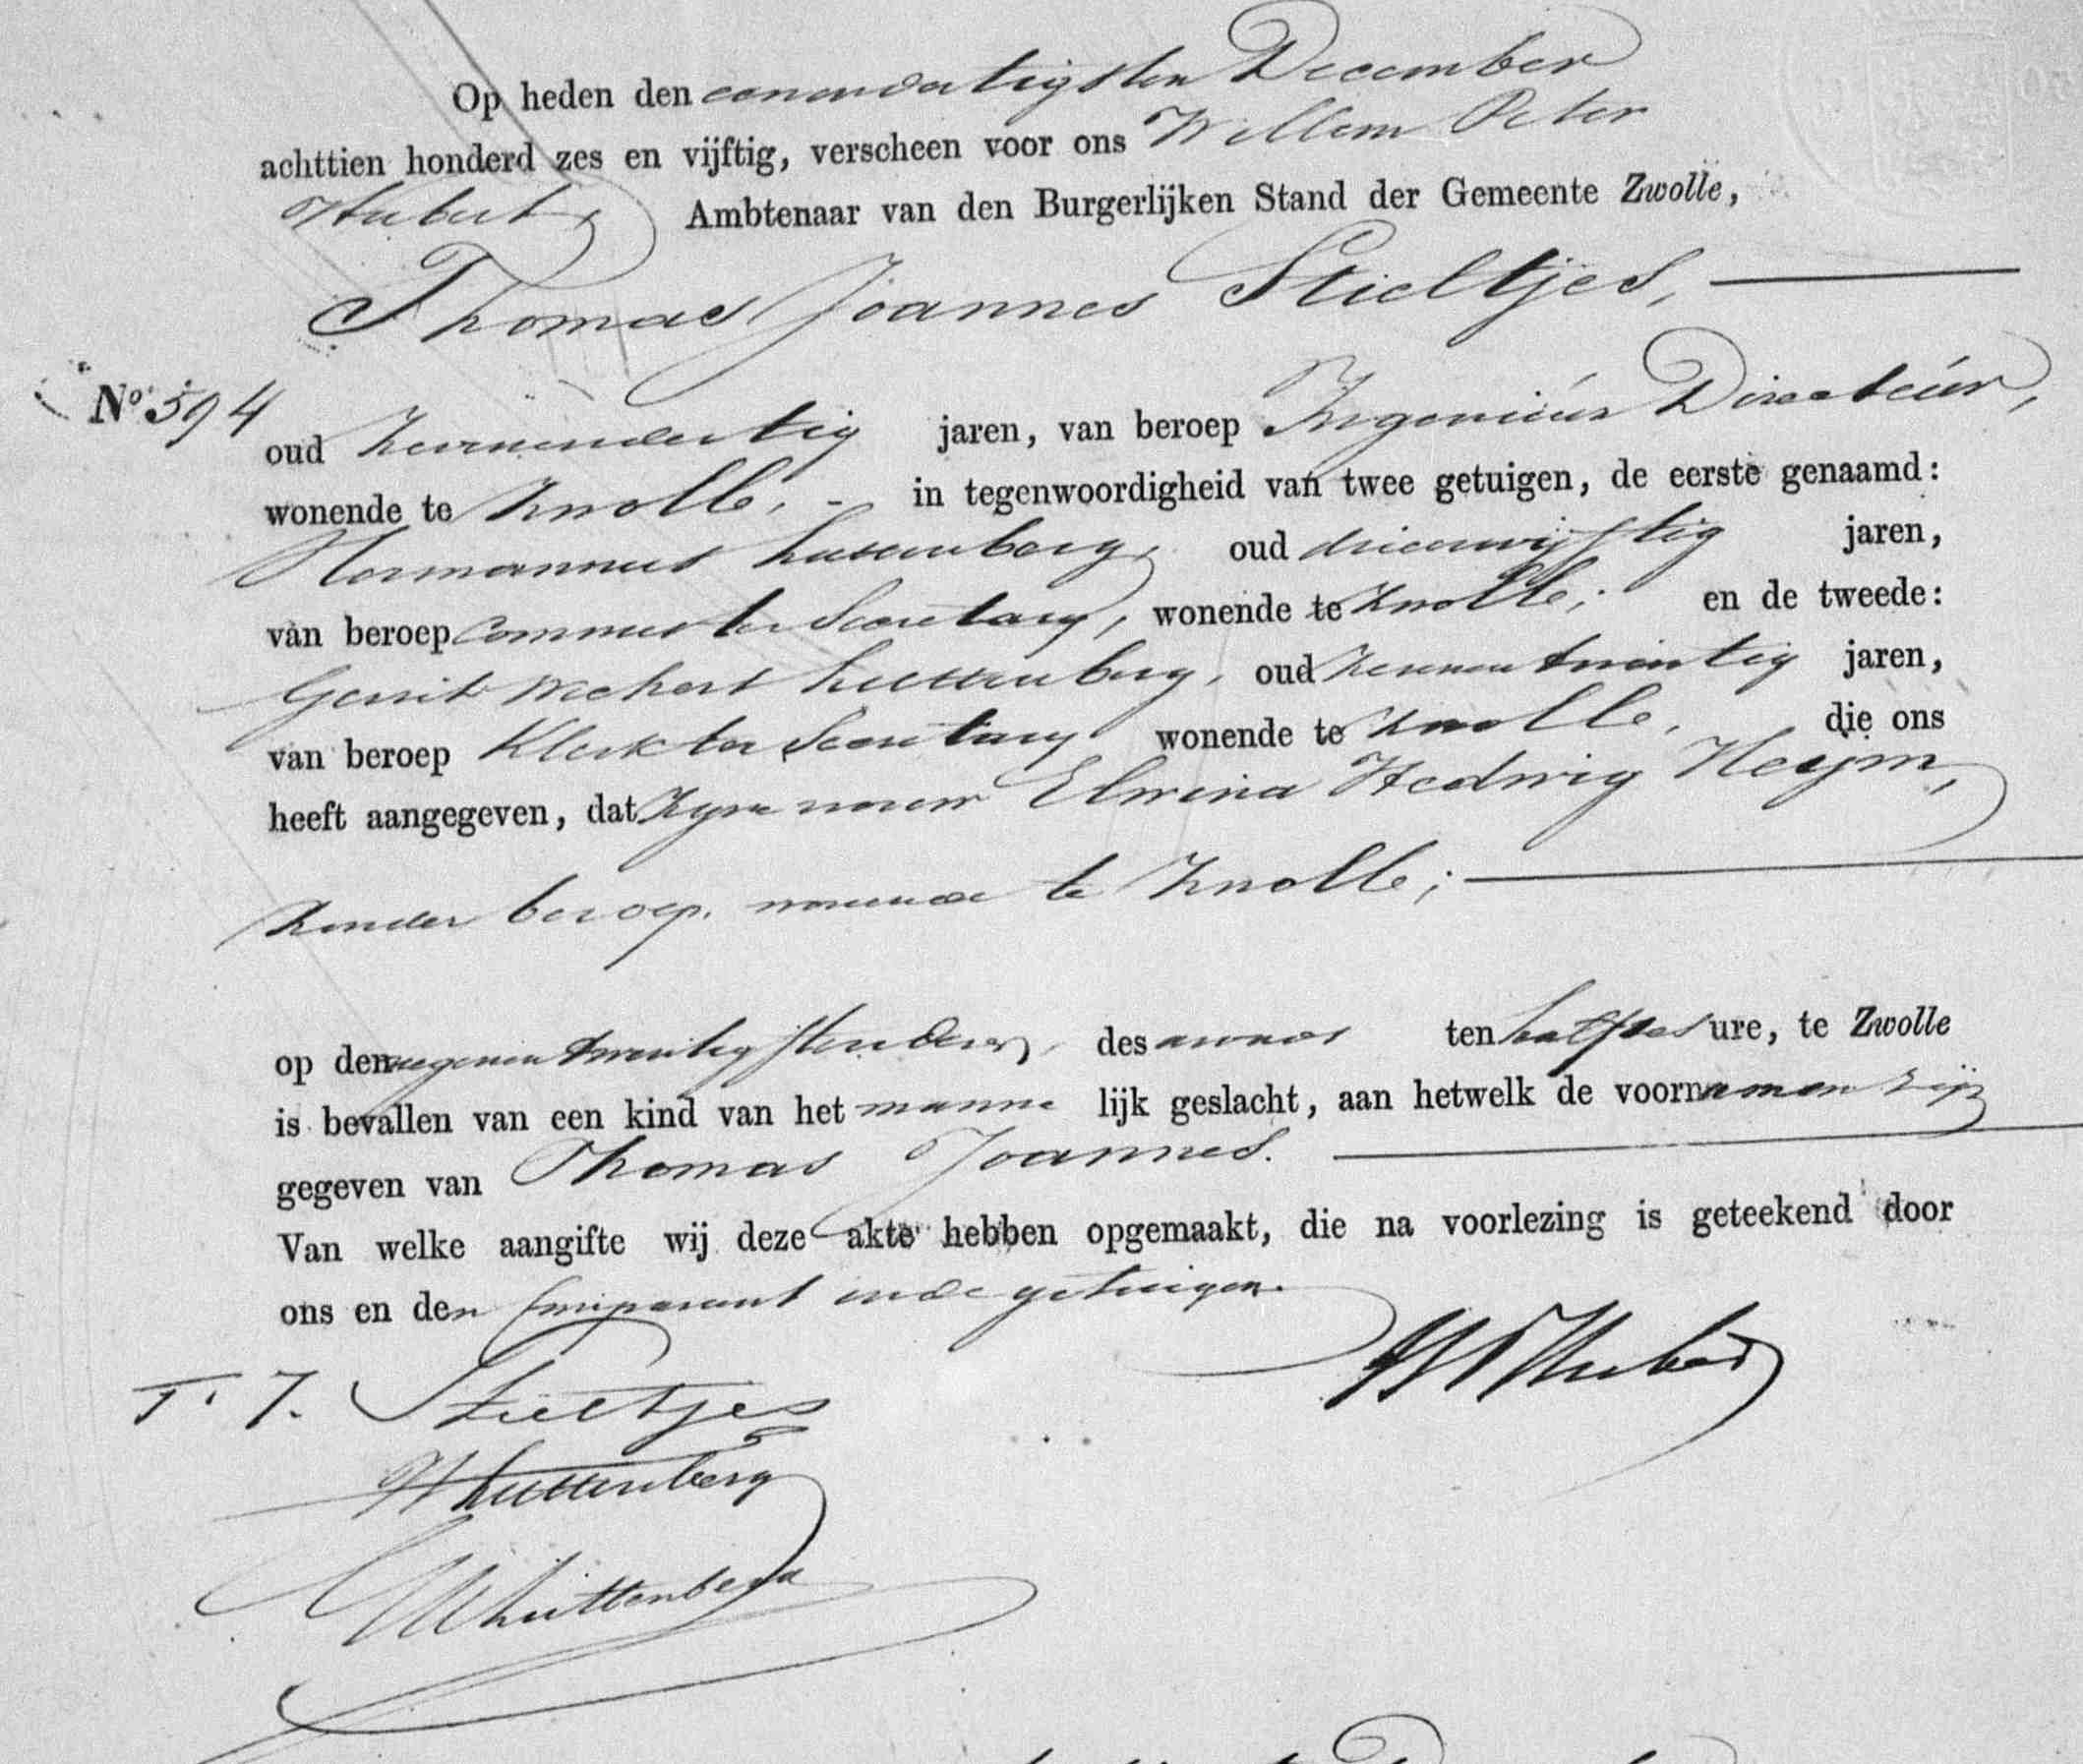 Op heden den eenendertigsten December
achttien honderd zes en vijftig, verscheen voor ons Willem Peter
Hubert, Ambtenaar van den Burgerlijken Stand der Gemeente Zwolle,
Thomas Joannes Stieltjes,
No 594
oud zevenendertig jaren, van beroep Ingenieur Directeur,
wonende te Zwolle, in tegenwoordigheid van twee getuigen, de eerste genaamd:
Hermannus Luttenberg, oud drieenvijftig jaren,
van beroep Commies ter Secretary, wonende te Zwolle; en de tweede:
Gerrit Luttenberg, oud zevenentwintig jaren,
van beroep Klerk ter Secretary wonende te Zwolle, die ons
heeft aangegeven, dat zyne vrouw Elwina Hedwig Heym,
zonder beroep, wonende te Zwolle;
op den negenentwintigsten dezer, des avonds ten half ure, te Zwolle
is bevallen van een kind van het manne lijk geslacht, aan hetwelk de voornamen zijn
gegeven van Thomas Joannes.
Van welke aangifte wij deze akte hebben opgemaakt, die na voorlezing is geteekend door
ons en den Comparant en de getuigen.
WPHubert
T. J. Stieltjes
HLuttenberg
GWLuttenberg